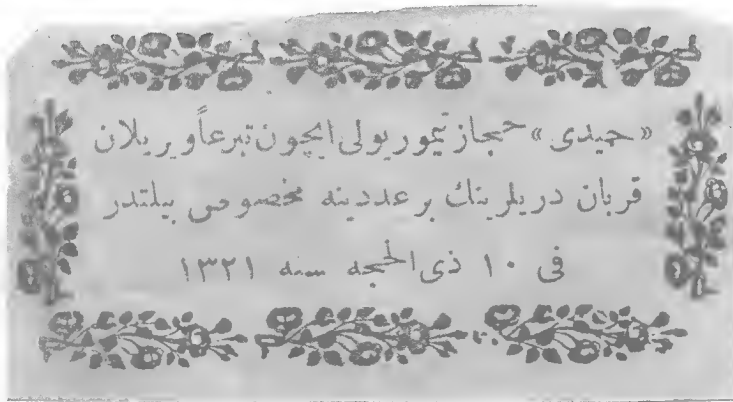 «حمیدی» حجاز تیمور یولی ایچون تبرعاً ویریلان
قربان دریلرینك بر عددینه مخصوص بیلتدر
فی ١٠ ذی الحجه سنه ١٣٢١